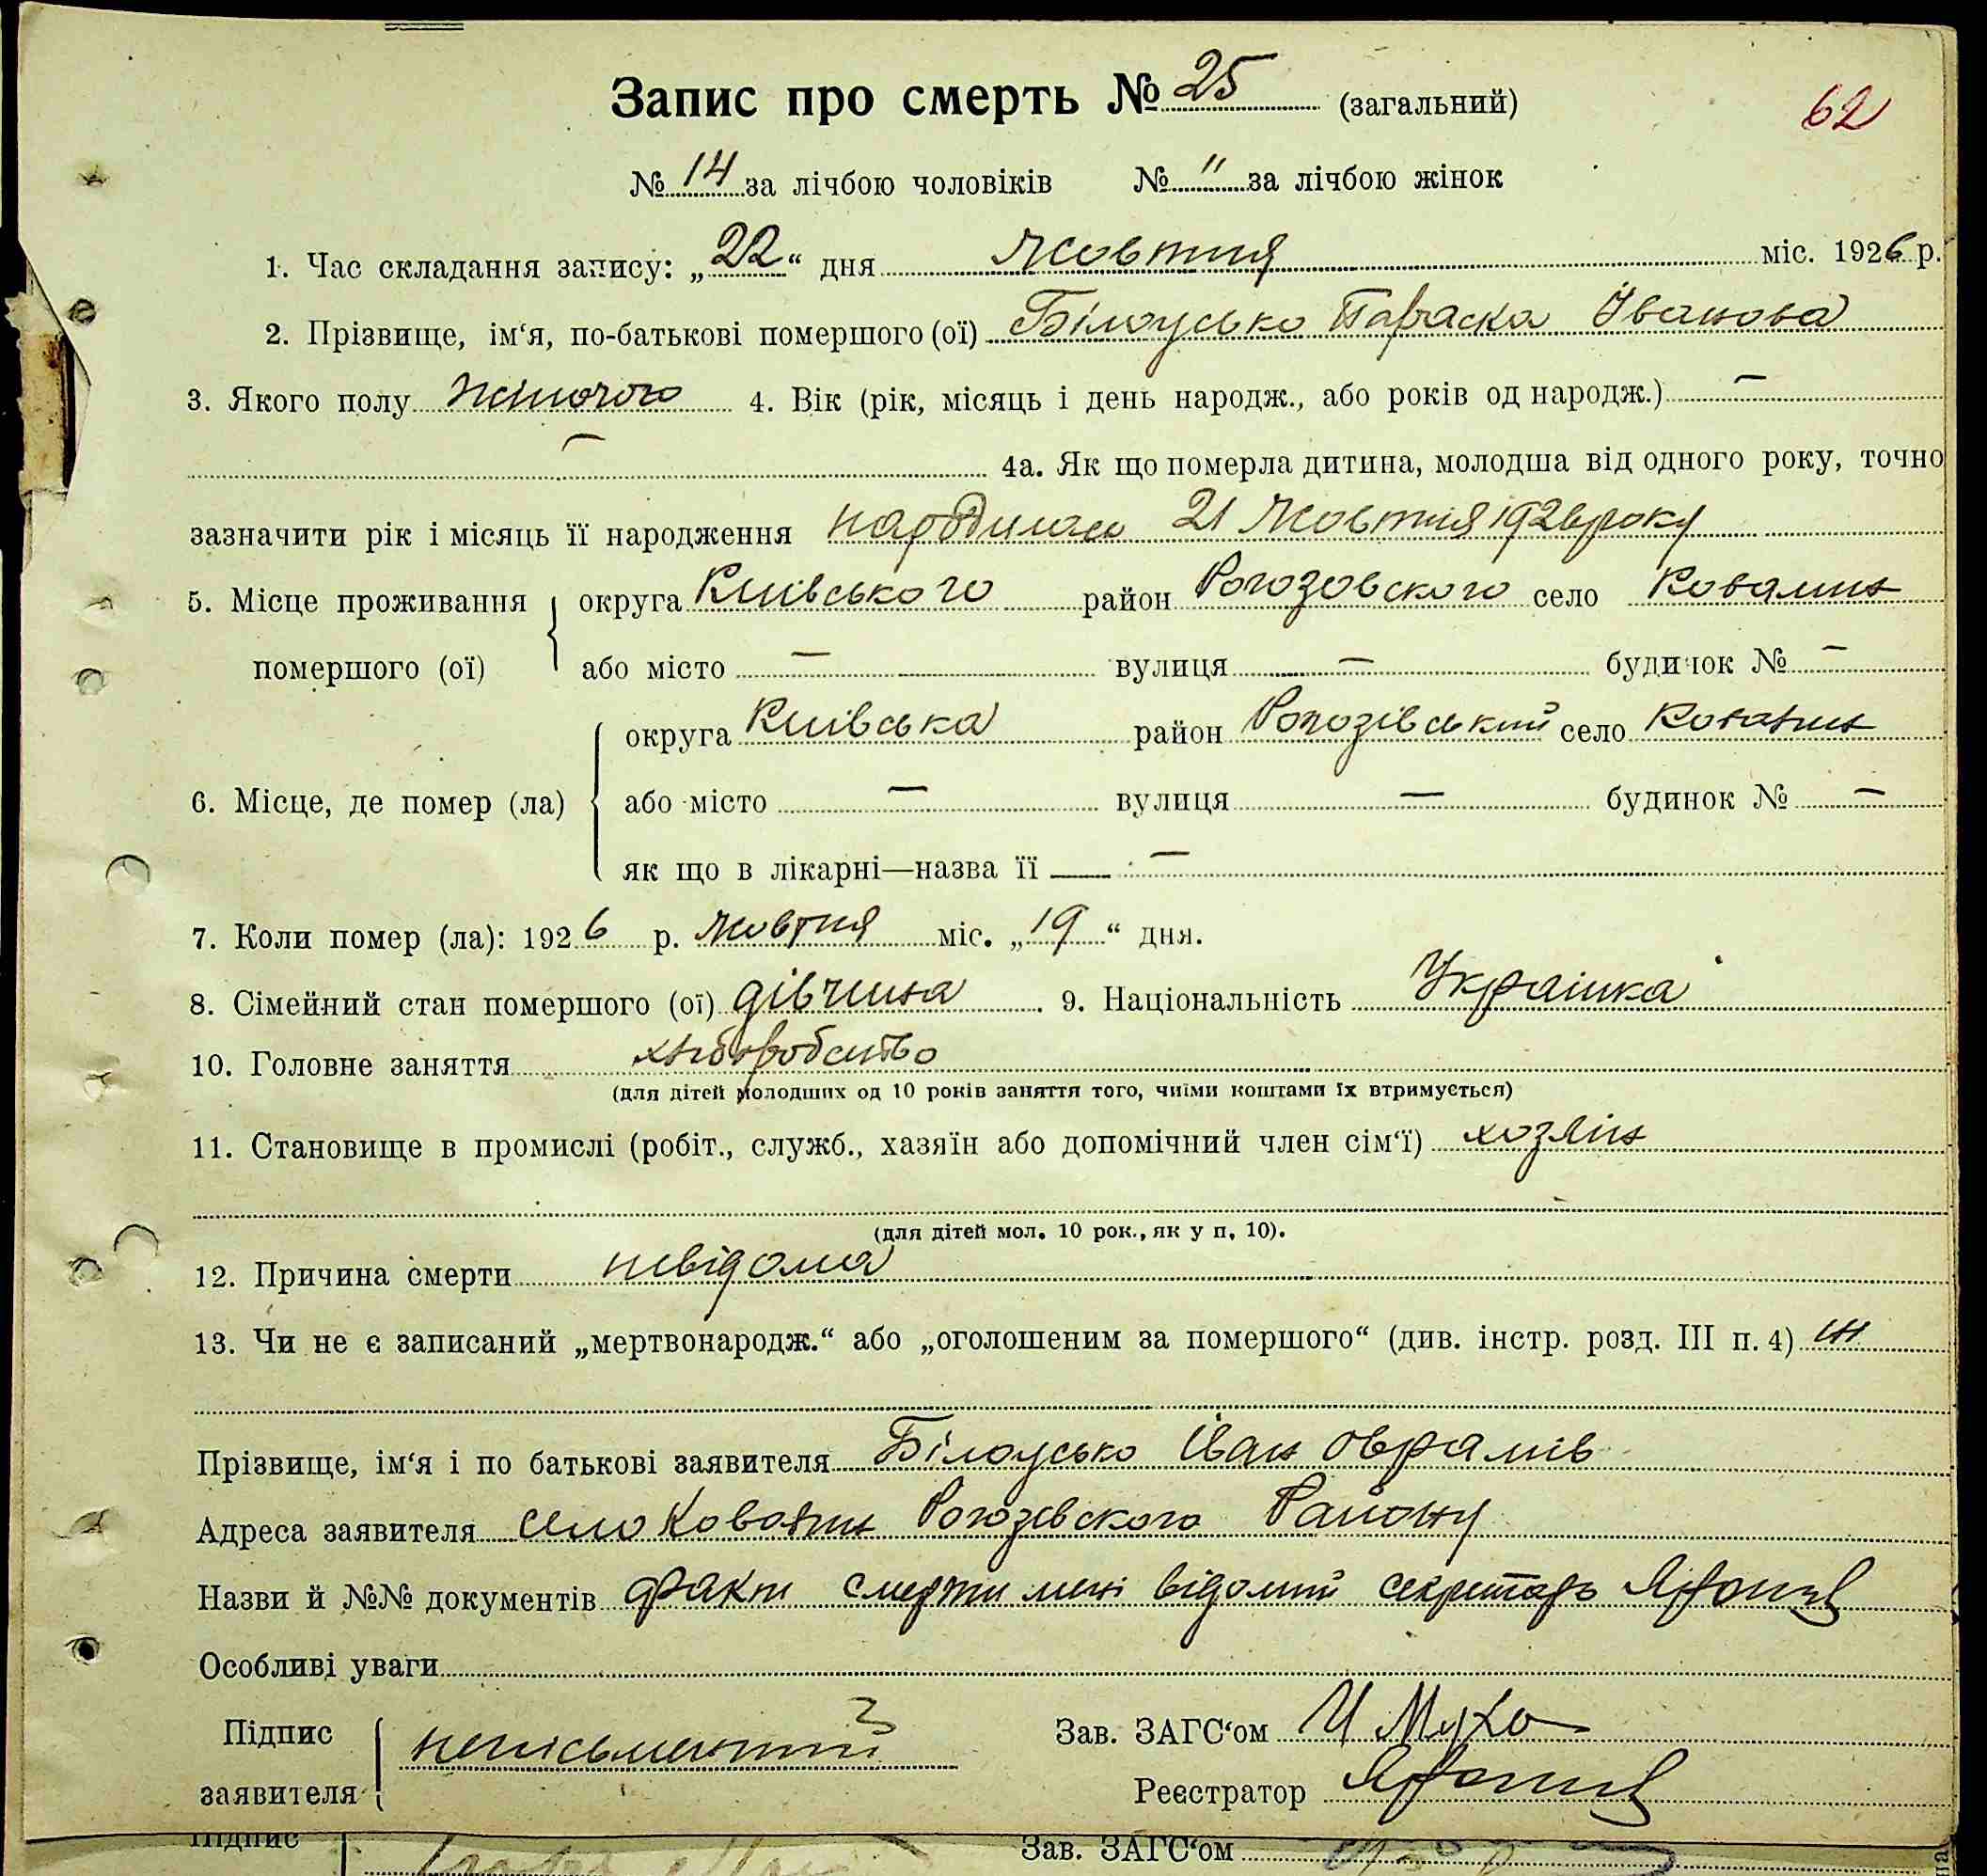 Запис про смерть № 25 (загальний)
62
№ 14 за лічбою чоловіків № " за лічбою жінок
1. Час складання запису: „22“ дня Жовтня міс. 1926 р.
2. Прізвище, ім‘я, по-батькові помершого (ої) Білоусько Параска Іванова
3. Якого полу жіночого 4. Вік (рік, місяць і день народж., або років од народж.) —
— 4а. Як що померла дитина, молодша від одного року, точно
зазначити рік і місяць її народження народилась 21 Жовтня 1926 року
5. Місце проживання округа Київського район Рогозовского село Ковалин
помершого (ої) або місто — вулиця — будинок № —
округа Київська район Рогозівський село Ковалин
6. Місце, де помер (ла) або місто — вулиця — будинок № —
як що в лікарні—назва її — —
7. Коли помер (ла): 1926 р. Жовтня міс. „19“ дня.
8. Сімейний стан помершого (ої) дівчина 9. Національність Українка
10. Головне заняття хліборобство
(для дітей молодших од 10 років заняття того, чиїми коштами їх втримується)
11. Становище в промислі (робіт., служб., хазяїн або допомічний член сім‘ї) хозяін
(для дітей мол. 10 рок., як у п, 10).
12. Причина смерти невідома
13. Чи не є записаний „мертвонародж.“ або „оголошеним за помершого“ (див. інстр. розд. III п. 4) ні
Прізвище, ім‘я і по батькові заявителя Білоусько Іван Оврамів
Адреса заявителя село Ковалин Рогозевского Району
Назви й №№ документів факт смерти мені відомий секретарь
Особливі уваги
Підпис неписьменний Зав. ЗАГС‘ом И Муха
заявителя Реєстратор
Підпис Зав. ЗАГС‘ом